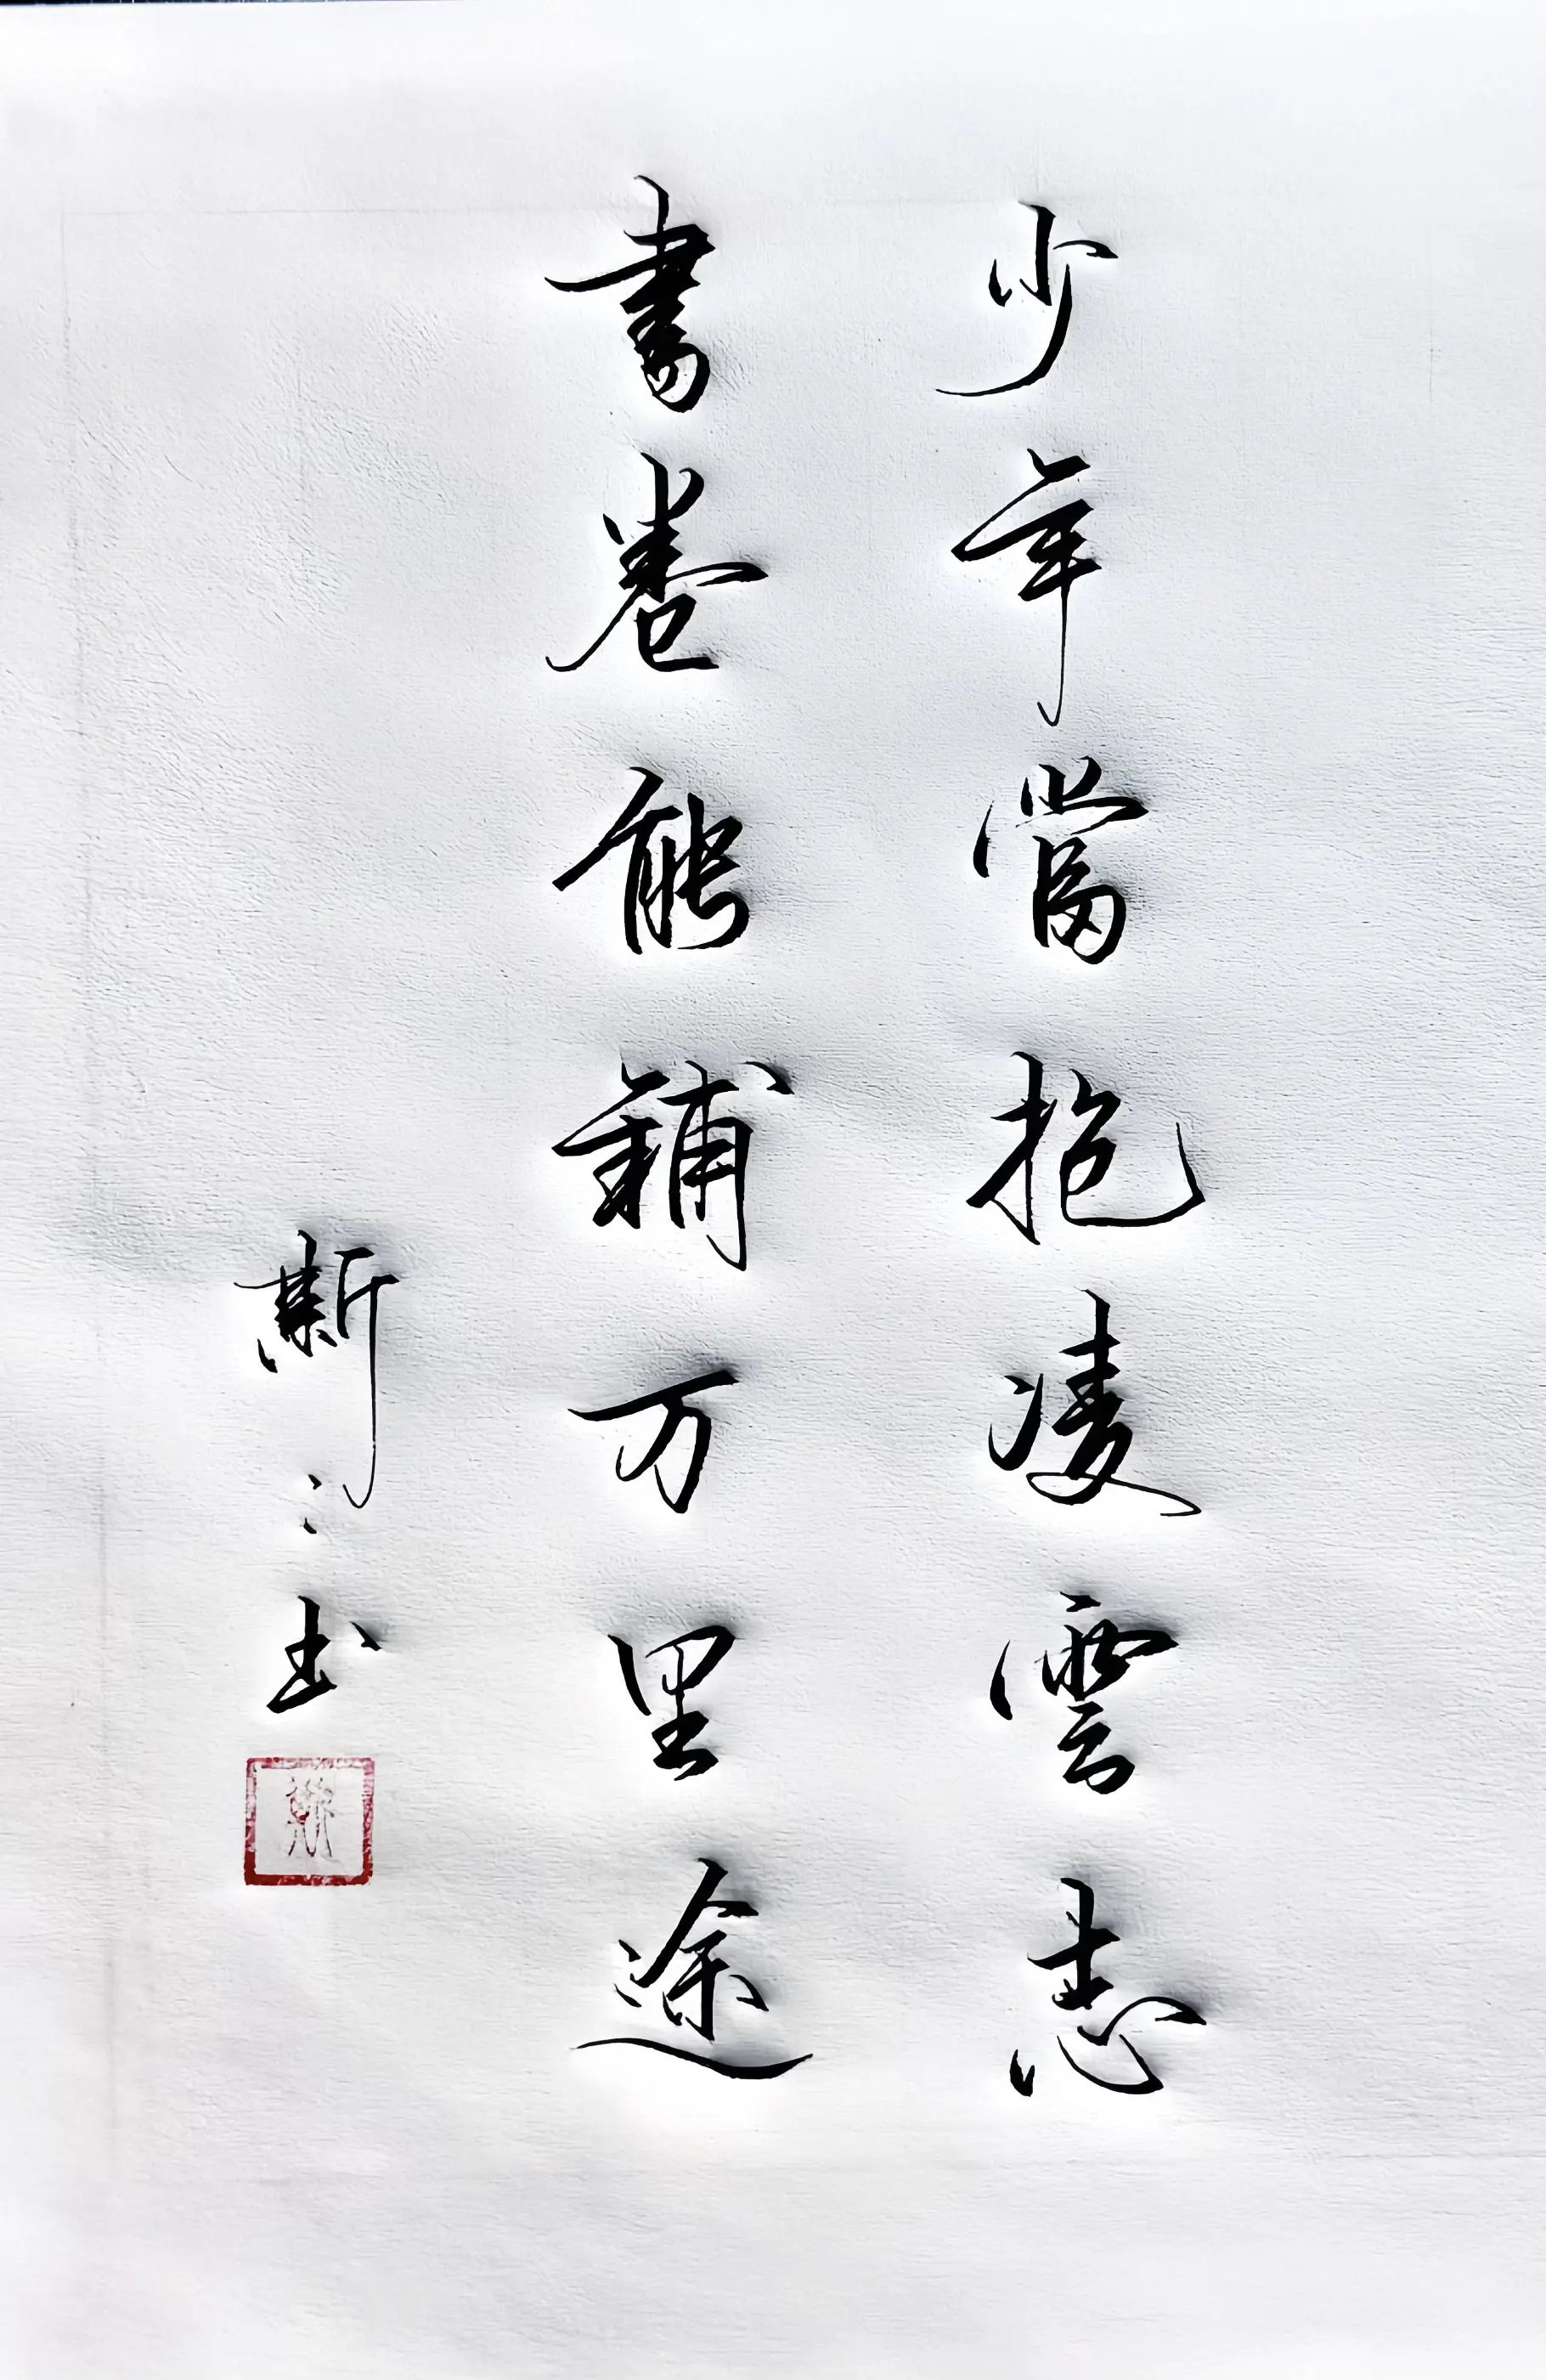 少年當抱凌雲志
書卷能鋪万里途
斯ミ书